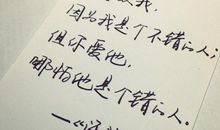 我,
因为我是个不错的人;
但你爱他,
哪怕他是个错的人。